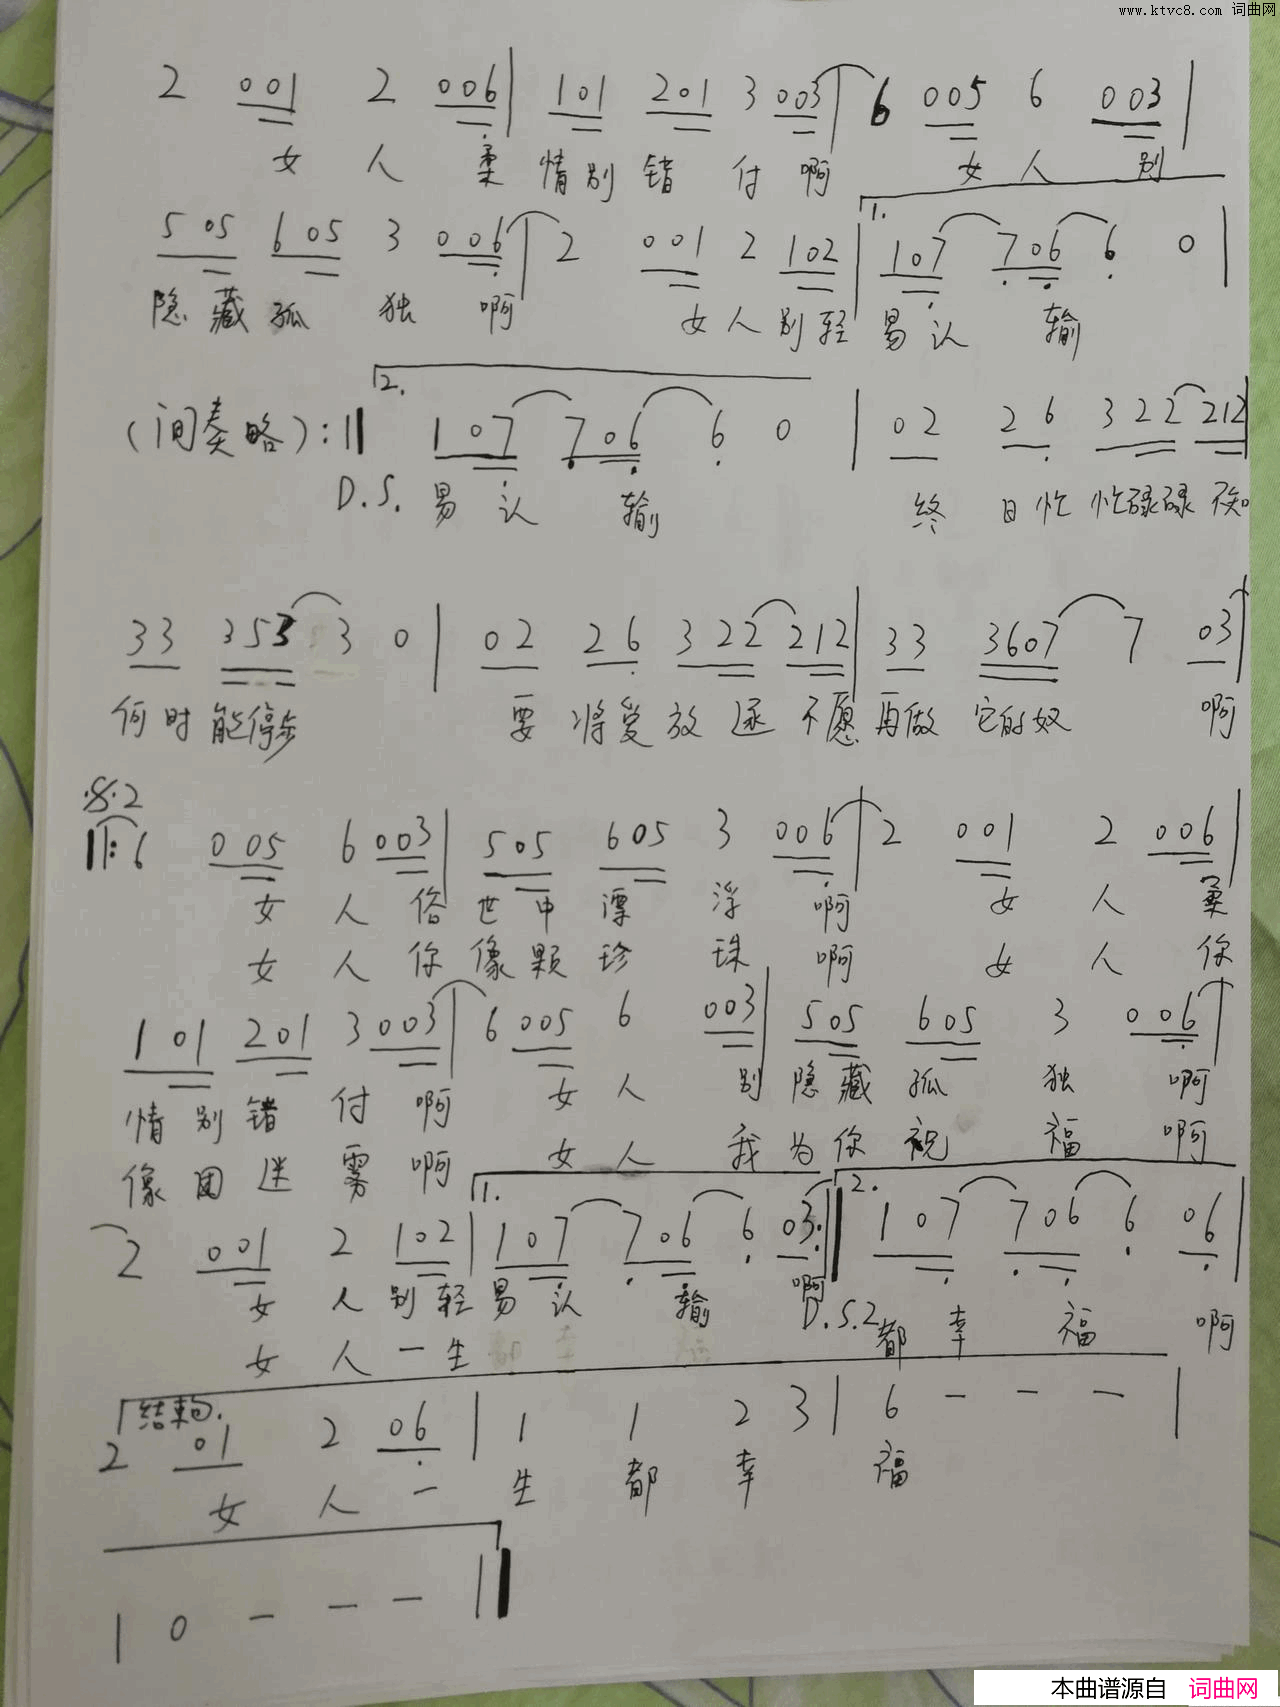 www.ktvc8.com 词曲网
2 001 2 006 | 101 201 3 003 | 6 005 6 003 |
女 人 柔 情 别 错 付 啊 女 人 别
1.
5 05 605 3 006 | 2 001 2 102 | 107 706 6 0 |
隐 藏 孤 独 啊 女 人 别 轻 易 认 输
2.
(间奏略):‖ 107 706 6 0 | 02 26 322 212 |
D.S. 易 认 输 终 日 忙 忙 碌 碌 不 知
33 353 3 0 | 02 26 322 212 | 33 3607 7 03 |
何 时 能 停 步 要 将 爱 放 逐 不 愿 再 做 它 的 奴 啊
.S.2
‖: 6 005 6 003 | 505 605 3 006 | 2 001 2 006 |
女 人 俗 世 中 漂 浮 啊 女 人 柔
女 人 你 像 颗 珍 珠 啊 女 人 你
101 201 3 003 | 6 005 6 003 | 505 605 3 006 |
情 别 错 付 啊 女 人 别 隐 藏 孤 独 啊
像 团 迷 雾 啊 女 人 我 为 你 祝 福 啊
1. 2.
2 001 2 102 | 107 706 6 03 :‖ 107 706 6 06 |
女 人 别 轻 易 认 输 啊 D.S.2 都 幸 福 啊
女 人 一 生
结束句.
2 01 2 06 | 1 1 2 3 | 6 – – – |
女 人 一 生 都 幸 福
| 0 – – – ‖
本曲谱源自 词曲网